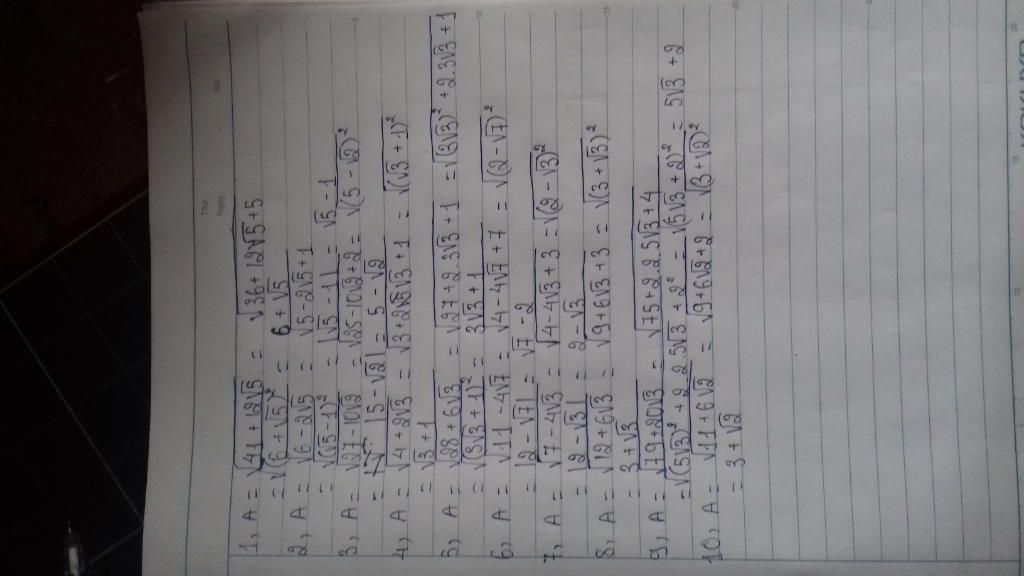 Thứ
Ngày
No.
1, A = √(41 + 12√5) = √(36 + 12√5 + 5)
= √((6 + √5)²) = 6 + √5
2, A = √(6 - 2√5) = √(5 - 2√5 + 1)
= √((√5 - 1)²) = |√5 - 1| = √5 - 1
3, A = √(27 - 10√2) = √(25 - 10√2 + 2) = √((5 - √2)²)
= |5 - √2| = 5 - √2
4, A = √(4 + 2√3) = √(3 + 2√3 + 1) = √((√3 + 1)²)
= √3 + 1
5, A = √(28 + 6√3) = √(27 + 2.3√3 + 1) = √((3√3)² + 2.3√3 + 1)
= √((3√3 + 1)²) = 3√3 + 1
6, A = √(11 - 4√7) = √(4 - 4√7 + 7) = √((2 - √7)²)
= |2 - √7| = √7 - 2
7, A = √(7 - 4√3) = √(4 - 4√3 + 3) = √((2 - √3)²)
= |2 - √3| = 2 - √3
8, A = √(12 + 6√3) = √(9 + 6√3 + 3) = √((3 + √3)²)
= 3 + √3
9, A = √(79 + 20√3) = √(75 + 2.2.5√3 + 4)
= √((5√3)² + 2.2.5√3 + 2²) = √((5√3 + 2)²) = 5√3 + 2
10, A = √(11 + 6√2) = √(9 + 6√2 + 2) = √((3 + √2)²)
= 3 + √2